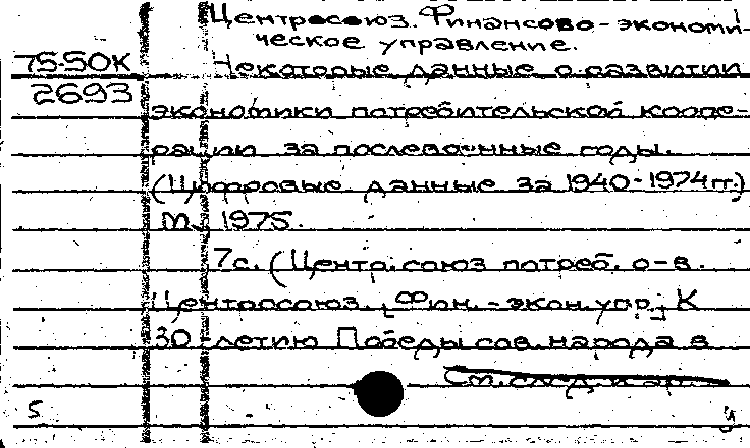 Центросоюз. Финансово-экономи-
ческое управление.
75-50К
Некоторые данные о развитии
2693
экономики потребительской коопе-
рации за послевоенные годы.
(Цифровые данные за 1940-1974гг.)
М., 1975.
7с. (Центр. союз потреб. о-в.
Центросоюз. Фин.-экон. упр; К
30-летию Победы сов. народа в
См. след. кар
5